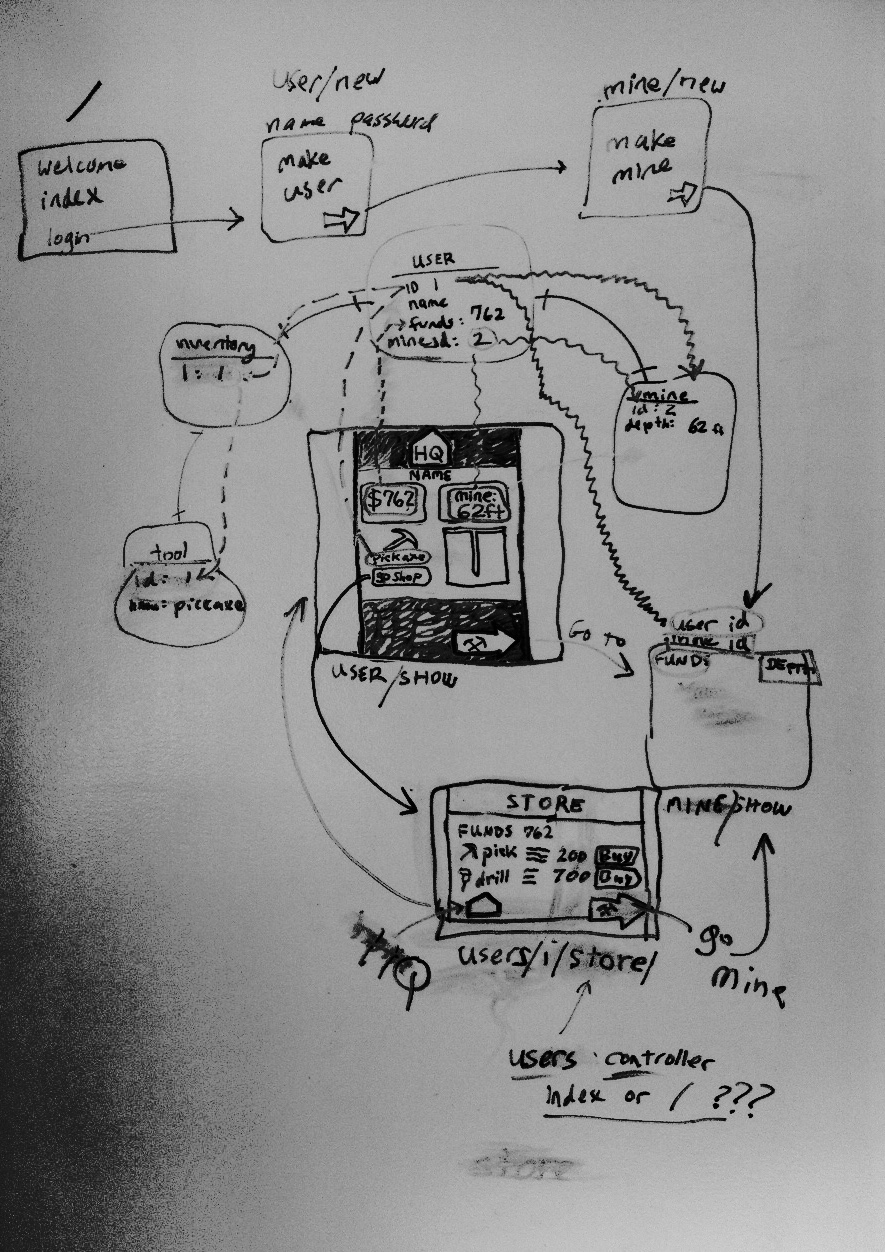 /
user/new
name password
mine/new
welcome
index
login
make
user
make
mine
USER
ID 1
name
funds: 762
mine id: 2
inventory
1: 1
mine
id: 2
depth: 62 ft
HQ
NAME
$762
mine:
62ft
pickaxe
shop
tool
id: 1
name: pickaxe
USER/SHOW
Go to
user id
mine id
FUNDS
DEPTH
MINE/SHOW
STORE
FUNDS 762
pick 200 Buy
drill 700 Buy
users/i/store/
go
mine
users controller
index or / ???